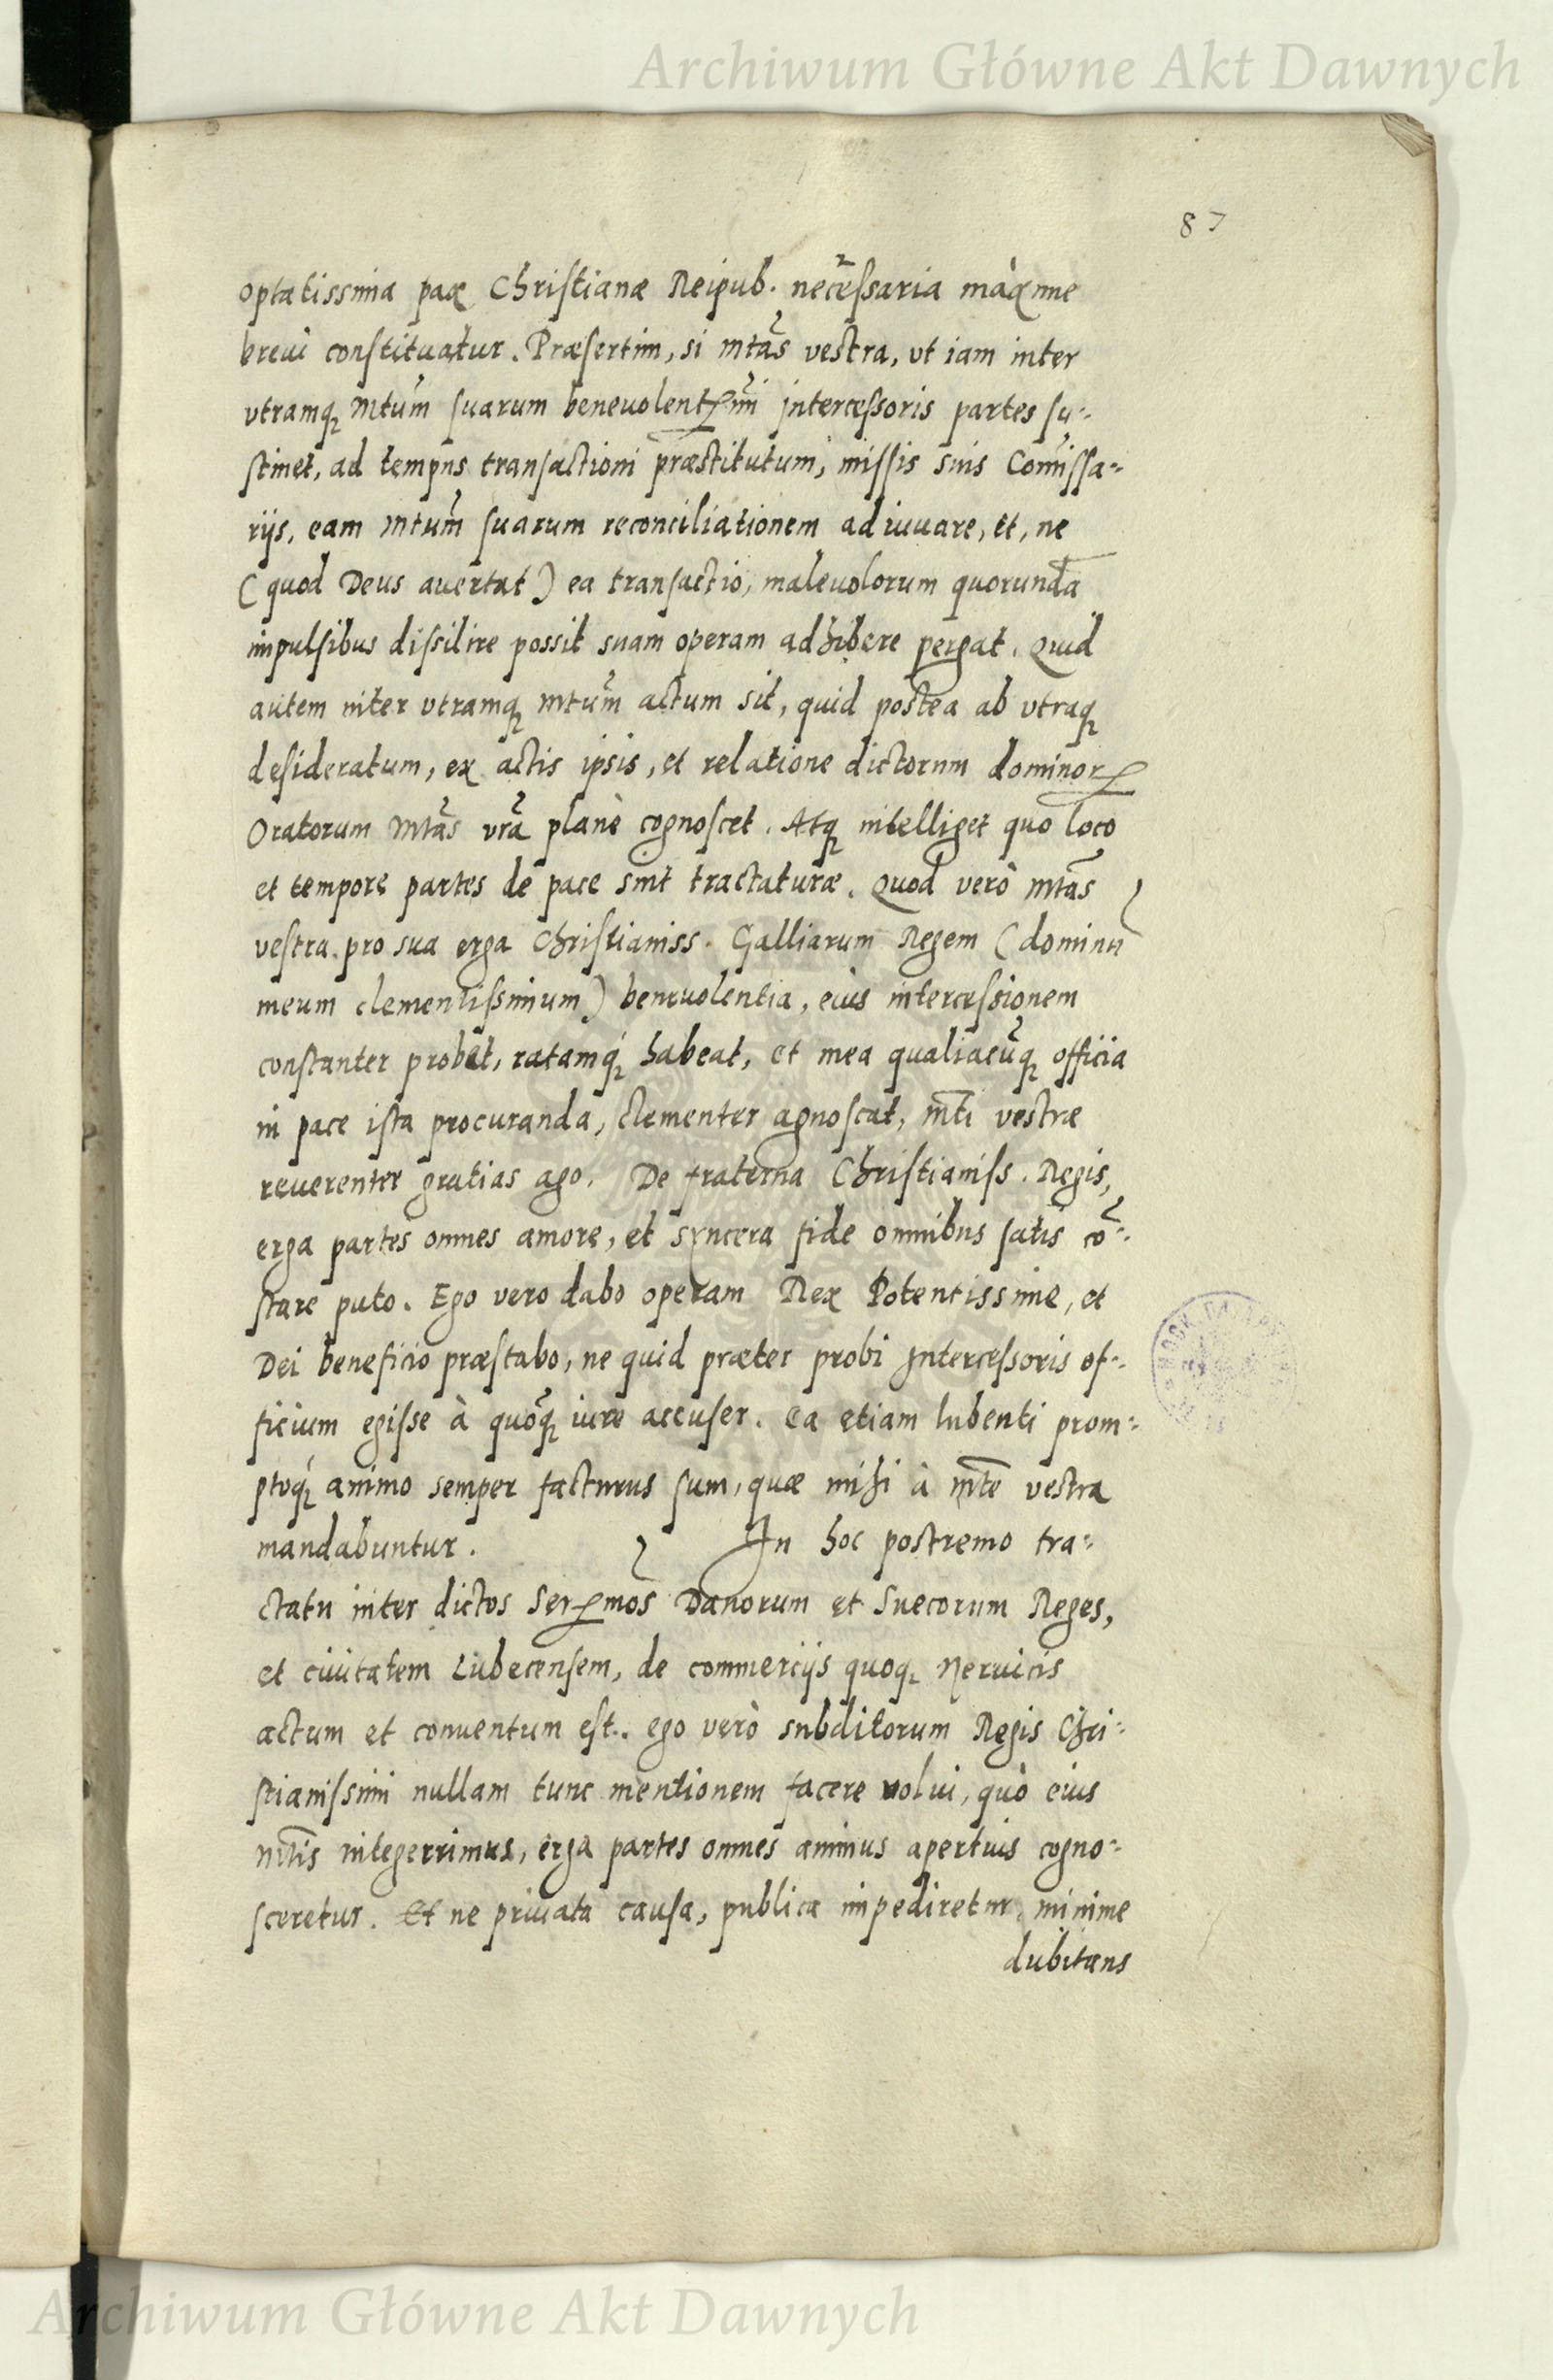 Archiwum Główne Akt Dawnych
87
optatissima pax Christianæ Reipub. necessaria màxime
breui constituatur. Præsertim, si Mtãs vestra, vt iam inter
vtramq; Mtum̃ suarum beneuolent intercessoris partes su-
stinet, ad tempus transactioni præstitutum, missis suis Com̃issa-
rijs, eam Mtum̃ suarum reconciliationem adiuuare, et, ne
(quod Deus auertat) ea transactio, maleuolorum quorundā
impulsibus dissilire possit suam operam adhibere pergat. Quid
autem inter vtramq; Mtum̃ actum sit, quid postea ab vtraq;
desideratum, ex actis ipsis, et relatione dictorum dominorꝝ
Oratorum Mtãs vrã planè cognoscet. Atq; intelliget quo loco
et tempore partes de pace sint tractaturæ. Quod verò Mtãs
vestra. pro sua erga Christianiss. Galliarum Regem (dominũ
meum clementissimum) beneuolentia, eius intercessionem
constanter probet, ratamq; habeat, et mea qualiacũq; officia
in pace ista procuranda, clementer agnoscat, Mti vestræ
reuerenter gratias ago. De fraterna Christianiss. Regis,
erga partes omnes amore, et syncera fide omnibus satis cõ-
stare puto. Ego vero dabo operam Rex Potentissime, et
Dei beneficio præstabo, ne quid præter probi Intercessoris of-
ficium egisse à quoq̃; iure accuser. Ea etiam lubenti prom-
ptoq; animo semper facturus sum, quæ mihi à Mte vestra
mandabuntur. In hoc postremo tra-
ctatu inter dictos Serꝑmos̃ Danorum et Suecorum Reges,
et ciuitatem Lubecensem, de commercijs quoq; Neruicis
actum et conuentum est. ego verò subditorum Regis Chri-
stianissimi nullam tunc mentionem facere volui, quò eius
Mtis integerrimus, erga partes omnes animus apertius cogno-
sceretur. Et ne priuata causa, publica impediretur, minime
dubitans
Archiwum Główne Akt Dawnych